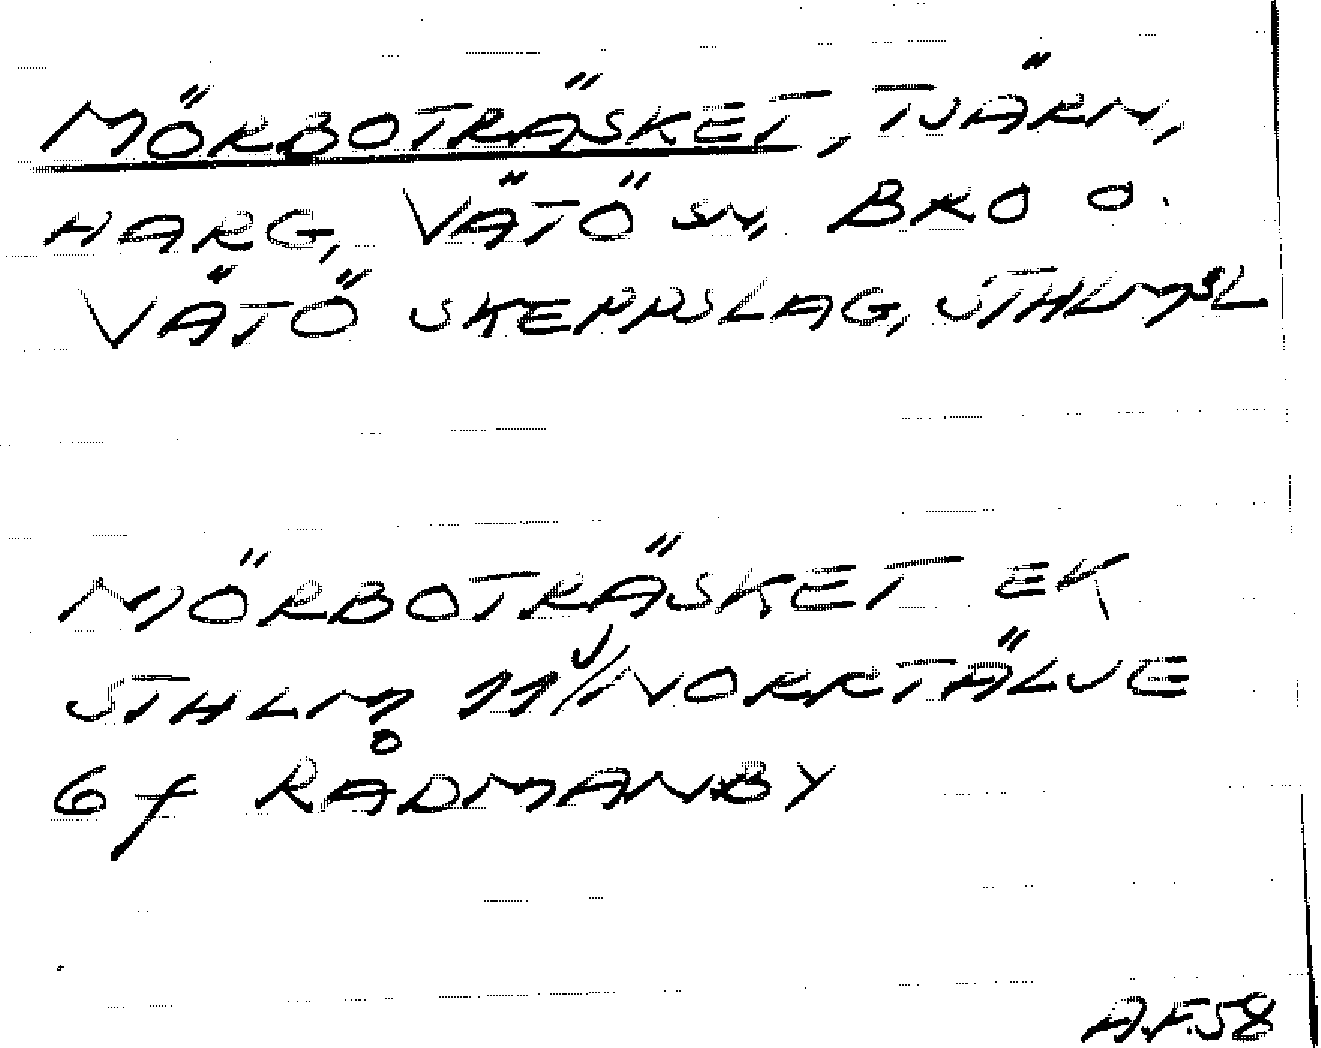 MÖRBOTRÄSKET, TJÄRN,
HARG, VÄTÖ SN, BRO O.
VÄTÖ SKEPPSLAG, STHLMSL
MÖRBOTRÄSKET EK
STHLM 11J/NORRTÄLJE
6f RÅDMANBY
A.F.58